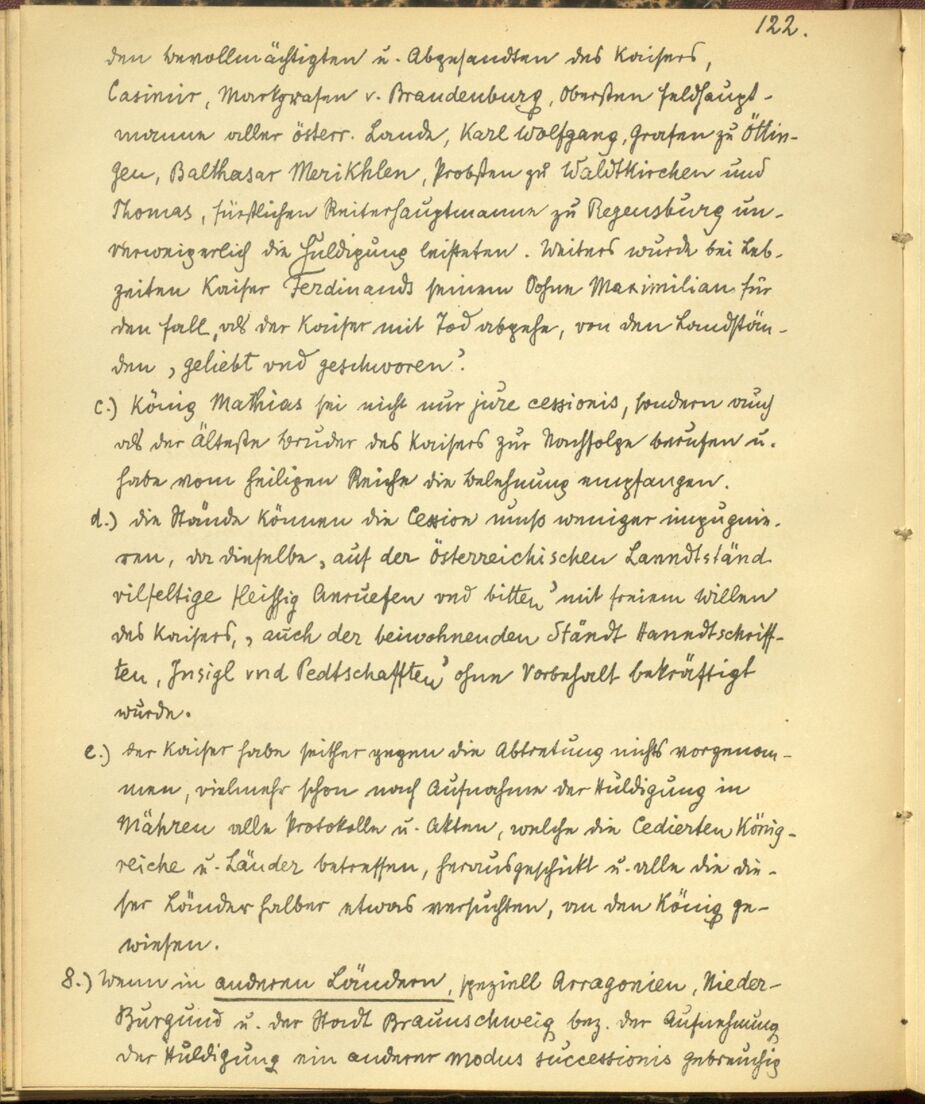 122.
den bevollmächtigten u. Abgesandten des Kaisers,
Casimir, Markgrafen v. Brandenburg, Obersten Feldhaupt-
manne aller österr. Lande, Karl Wolfgang, Grafen zu Öttin-
gen, Balthasar Merikhlen, Probsten zu Waldtkirchen und
Thomas, fürstlichen Reiterhauptmanne zu Regensburg un-
verweigerlich die Huldigung leisteten. Weiters wurde bei Leb-
zeiten Kaiser Ferdinands seinem Sohne Maximilian für
den Fall, als der Kaiser mit Tod abgehe, von den Landstän-
den „geliebt vnd geschworen“.
c.) König Mathias sei nicht nur jure cessionis, sondern auch
als der älteste Bruder des Kaisers zur Nachfolge berufen u.
habe vom heiligen Reiche die Belehnung empfangen.
d.) die Stände können die Cession umso weniger impugnie-
ren, da dieselbe „auf der österreichischen Lanndtständ
vilfeltige fleissig Anruefen vnd bitten“ mit freiem Willen
des Kaisers, „auch der beiwohnenden Ständt Hanndtschriff-
ten, Insigl vnd Pedtschafften“ ohne Vorbehalt bekräftigt
wurde.
e.) der Kaiser habe seither gegen die Abtretung nichts vorgenom-
men, vielmehr schon nach Aufnahme der Huldigung in
Mähren alle Protokolle u. Akten, welche die cedierten König-
reiche u. Länder betreffen, herausgeschickt u. alle die die-
ser Länder halber etwas versuchten, an den König ge-
wiesen.
8.) Wenn in anderen Ländern, speziell Arragonien, Nieder-
Burgund u. der Stadt Braunschweig bez. der Aufnehmung
der Huldigung ein anderer modus successionis gebreuchig